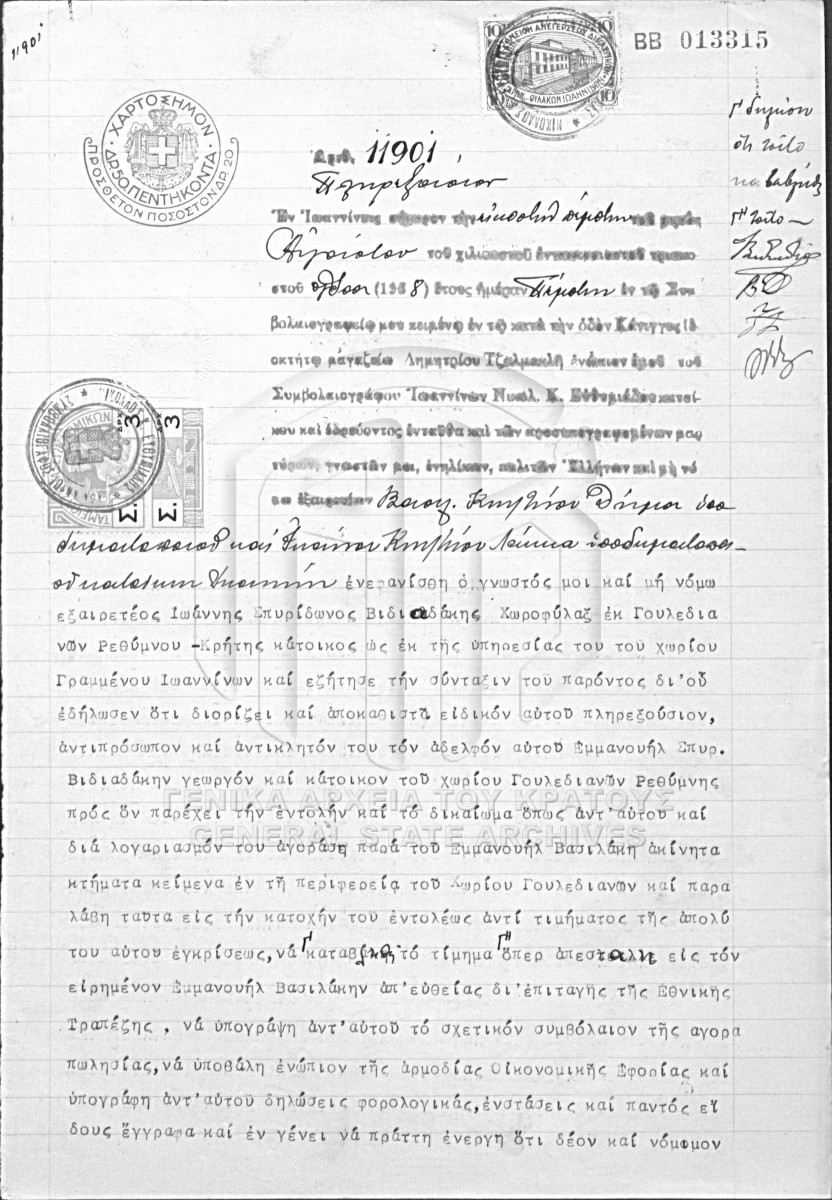 11901
ΒΒ 013315
ΧΑΡΤΟΣΗΜΟΝ
ΔΡ50ΠΕΝΤΗΚΟΝΤΑ
ΠΡΟΣΘΕΤΟΝ ΠΟΣΟΣΤΟΝ ΔΡ. 20
10 10
Ἀριθ. 11901
Πληρεξούσιον
Ἐν Ἰωαννίνοις σήμερον τὴν εἰκοστὴν πέμπτην τοῦ μηνὸς
Αὐγούστου τοῦ χιλιοστοῦ ἐννεακοσιοστοῦ τριακο
στοῦ ὀγδόου (1938) ἔτους ἡμέραν Πέμπτην ἐν τῷ Συμ
βολαιογραφείῳ μου κειμένῳ ἐν τῷ κατὰ τὴν ὁδὸν Κάνιγγος ἰδι
οκτήτῳ μαγαζείῳ Δημητρίου Τζαλμακλῆ ἐνώπιον ἐμοῦ τοῦ
Συμβολαιογράφου Ἰωαννίνων Νικολ. Κ. Εὐθυμιάδου κατοί
κου καὶ ἑδρεύοντος ἐνταῦθα καὶ τῶν προσυπογραφομένων μαρ
τύρων, γνωστῶν μοι, ἐνηλίκων, πολιτῶν Ἑλλήνων καὶ μὴ νό
μῳ ἐξαιρετέων Βασιλ. Κωνστ/νου Δήμου ὑπο
δηματοποιοῦ καὶ Κωνστ/νου Λάκκα ὑποδηματοποι
ἐνεφανίσθη ὁ γνωστός μοι καί μή νόμω
εξαιρετέος Ιωάννης Σπυρίδωνος Βιδιαδάκης Χωροφύλαξ ἐκ Γουλεδια
νῶν Ρεθύμνου -Κρήτης κάτοικος ὡς ἐκ τῆς ὑπηρεσίας του τοῦ χωρίου
Γραμμένου Ιωαννίνων καί εζήτησε τήν σύνταξιν τοῦ παρόντος δι'οὗ
ἐδήλωσεν ὅτι διορίζει καί ἀποκαθιστᾶ εἰδικόν αὐτοῦ πληρεξούσιον,
ἀντιπρόσωπον καί ἀντικλητόν του τόν ἀδελφόν αὐτοῦ Εμμανουήλ Σπυρ.
Βιδιαδάκην γεωργόν καί κάτοικον τοῦ χωρίου Γουλεδιανῶν Ρεθύμνης
πρός ὅν παρέχει τήν ἐντολήν καί τό δικαίωμα ὅπως ἀντ'αὐτοῦ καί
διά λογαριασμόν του ἀγοράση παρά τοῦ Εμμανουήλ Βασιλάκη ἀκίνητα
κτήματα κείμενα ἐν τῆ περιφερεία τοῦ Χωρίου Γουλεδιανων καί παρα
λάβη ταυτα εἰς τήν κατοχήν του ἐντολέως ἀντί τιμήματος τῆς ἀπολύ
του αὐτου ἐγκρίσεως,νά καταβληθῆ τό τίμημα ὅπερ ἀπεστάλη εἰς τόν
εἰρημένον Εμμανουήλ Βασιλάκην ἀπ'εὐθείας δι'ἐπιταγῆς τῆς Εθνικῆς
Τραπέζης , νά ὑπογράψη ἀντ'αὐτοῦ τό σχετικόν συμβόλαιον τῆς αγορα
πωλησίας,νά ὑποβάλη ἐνώπιον τῆς ἁρμοδίας Οἰκονομικῆς Εφορίας καί
ὑπογράφη ἀντ'αὐτοῦ δηλώσεις φορολογικάς,ἐνστάσεις καί παντός εἴ
δους ἔγγραφα καί ἐν γένει νά πράττη ἐνεργη ὅτι δέον καί νόμιμον
ΓΕΝΙΚΑ ΑΡΧΕΙΑ ΤΟΥ ΚΡΑΤΟΥΣ
GENERAL STATE ARCHIVES